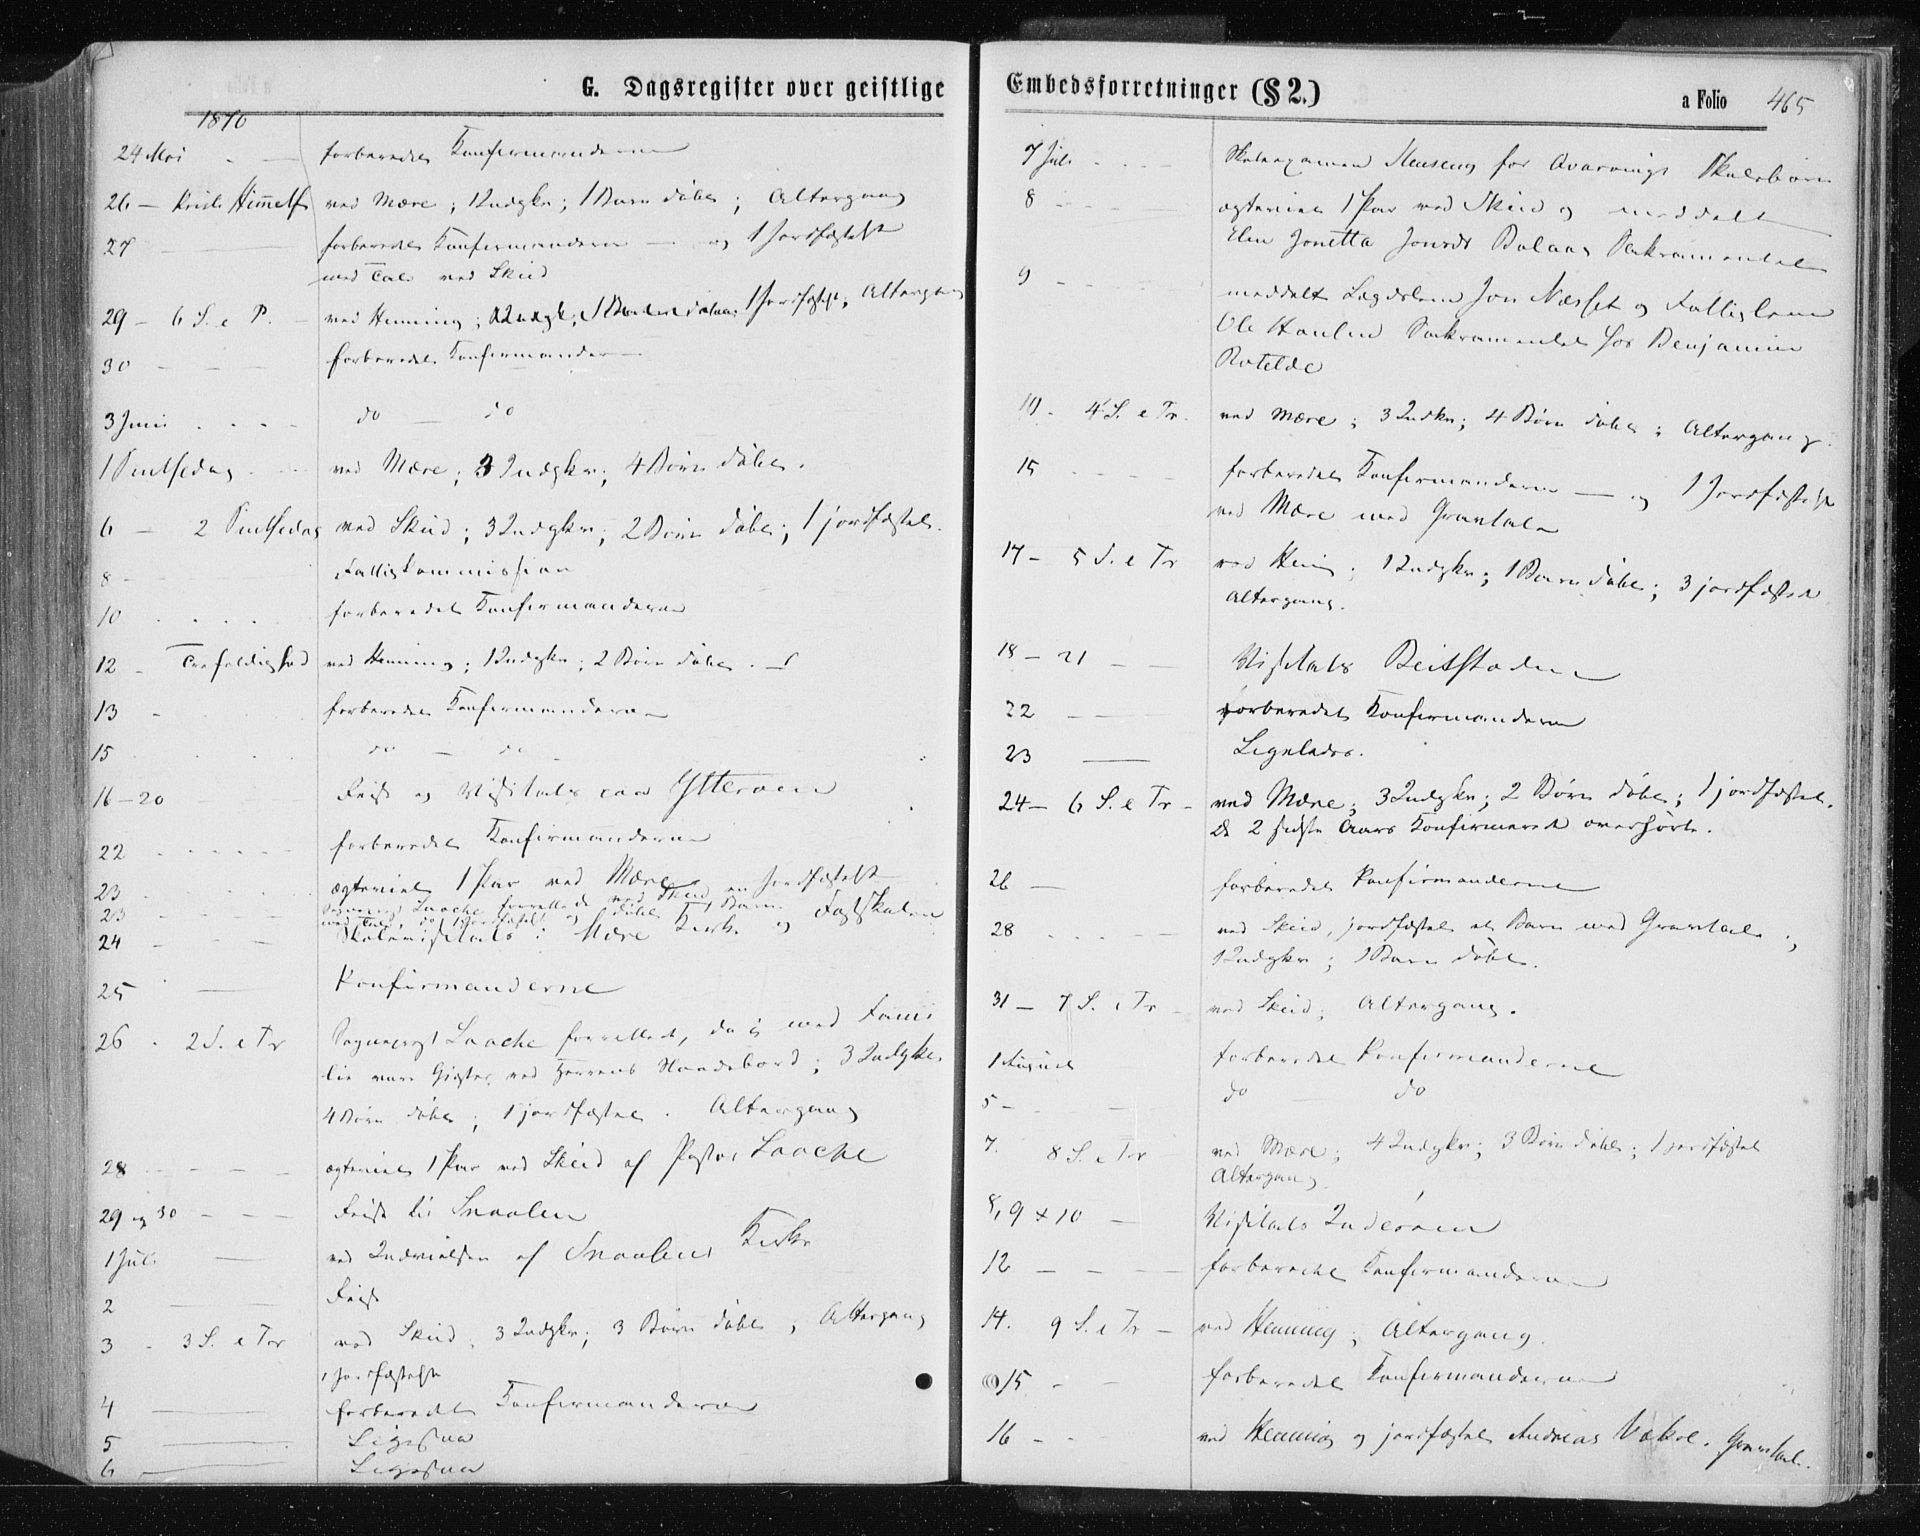 G. Dagsregister over geistlige
1870
24 Mai forberedet Konfirmanderne
26 – Kristi Himmelf ved Mære; 1 Indgkv; 1 Barn døbt; Altergang
27 forberedet Konfirmanderne – og 1 Jordfæstelse
med Tale ved Skeid
29 – 6 S. e P. – ved Henning; Indgk; døbt; 1 Jordfæstelse; Altergang
30 forberedet Konfirmanderne
3 Juni do – do
1 Pintsedag ved Mære; 3 Indgkv; 4 Børn døbt.
6 – 2 Pintsedag ved Skeid; 3 Indgkv; 2 Børn døbt; 1 jordfæstet.
8 – Fattigkommission
10 forberedet Konfirmanderne
12 – Trefoldighed ved Henning; 1 Indgkv; 2 Børn døbt.
13 – forberedet Konfirmanderne
15 do – do
16–20 Reise og Visitats paa Ytterøen
22 forberedet Konfirmanderne
23 ægteviet 1 Par ved Mære, en Jordfæstelse
23 Sogneprest Laache forrettede ved Skeid, døbt 1 Barn
24 Skolevisitats i Mære Kirke og Fastskolen
25 Konfirmanderne
26 – 2 S. e Tr Sogneprest Laache forrettet, da jeg med Fami
lie vare Gjæster ved Herrens Naadebord; 3 Indgkv
4 Børn døbt; 1 jordfæstet. Altergang
28 ægteviet 1 Par ved Skeid af Pastor Laache
29 og 30 Reise til Snaasen
1 Juli ved Indvielsen af Snaasens Kirke
2 Reise
3 – 3 S. e Tr ved Skeid, 3 Indgkv; 3 Børn døbt, Altergang
1 Jordfæstelse
4 forberedet Konfirmanderne
5 Ligesaa
6 Ligesaa
Embedsforretninger (§ 2.)
a Folio 465
7 Juli Skoleexamen for Skolebørn
8 ægteviet 1 Par ved Skeid og meddelt
Elen Jonetta Jonsdt Bolaas Sakramentet
9 meddelt Lægdslem Jon Næsset og Fattiglem
Ole Sakramentet hos Benjamin
10 – 4 S. e Tr. ved Mære; 3 Indkv; 4 Børn døbt; Altergang.
15 forberedet Konfirmanderne – og 1 Jordfæstelse
ved Mære med Gravtale
17 – 5 S. e Tr ved Hening; 1 Indgkv; 1 Barn døbt; 3 jordfæstet
Altergang.
18 – 21 Visitats Beitstaden
22 forberedet Konfirmanderne
23
24 – 6 S. e Tr – ved Mære; 3 Indgkv; 2 Børn døbt; 1 jordfæstet.
De 2 sidste Aars Konfirmerede overhørte.
26 – forberedet Konfirmanderne
28 ved Skeid, jordfæstet et Barn med Gravtale;
1 Indgkv; 1 Barn døbt.
31 – 7 S. e Tr – ved Skeid; Altergang.
1 August forberedet Konfirmanderne
5 – do – do
7. 8 S. e Tr ved Mære; 4 Indgkv; 3 Børn døbt; 1 jordfæstet
Altergang
8, 9 & 10 – Visitats Inderøen
12 forberedet Konfirmanderne
14. 9 S. e Tr – ved Henning; Altergang.
15 forberedet Konfirmanderne
16 – ved Henning og jordfæstet Andreas Gravtale.